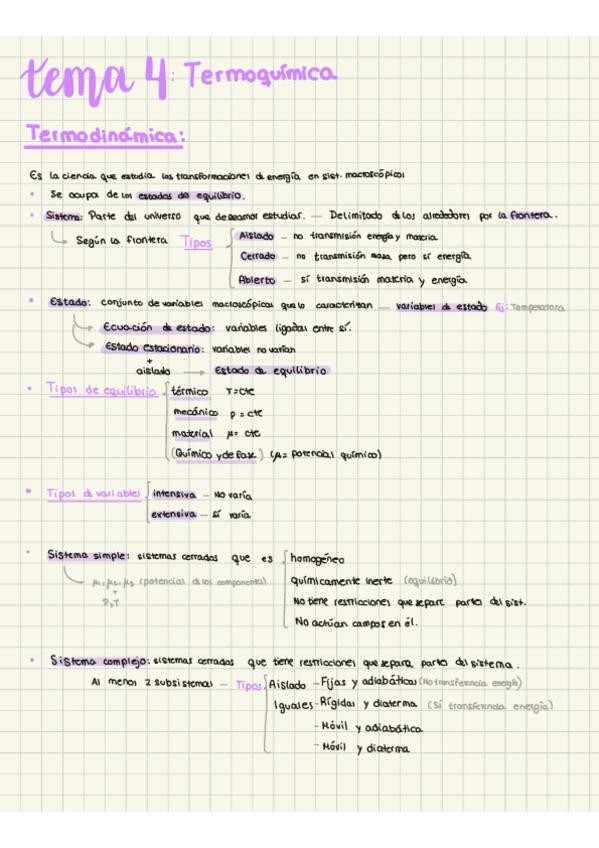 tema 4: Termoquímica
Termodinámica:
Es la ciencia que estudia las transformaciones de energía en sist. macroscópicos
• Se ocupa de los estados de equilibrio.
• Sistema: Parte del universo que deseamos estudiar. — Delimitado de los alrededores por la frontera.
Según la frontera Tipos
Aislado - no transmisión energía y materia
Cerrado - no transmisión masa, pero sí energía
Abierto - sí transmisión materia y energía
• Estado: conjunto de variables macroscópicas que lo caracterizan — variables de estado Ej: Temperatura
Ecuación de estado: variables ligadas entre sí.
Estado estacionario: variables no varían
+
aislado → Estado de equilibrio
• Tipos de equilibrio
térmico T=cte
mecánico p = cte
material μ= cte
(Químico y de fase) (μ= potencial químico)
• Tipos de variables
intensiva - No varía
extensiva - sí varía
• Sistema simple: sistemas cerrados que es
homogéneo
μ₁, μ₂, μ₃ (potencial de los componentes)
+
P,T
químicamente inerte (equilibrio)
No tiene restricciones que separe partes del sist.
No actúan campos en él.
• Sistema complejo: sistemas cerrados que tiene restricciones que separa partes del sistema.
Al menos 2 subsistemas - Tipos
Aislado - Fijas y adiabáticas (No transferencia energía)
Iguales - Rígidas y diaterma (Sí transferencia energía)
- Móvil y adiabática
- Móvil y diaterma